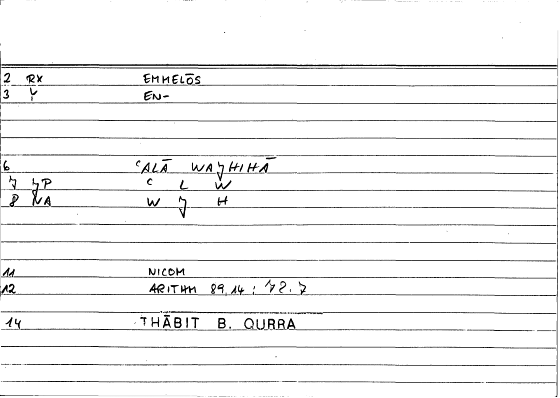 2 RX EMMELŌS
3 Y EN-
6 ʿALĀ WAJHIHĀ
7 JP ʿ L W
8 NA W J H
11 NICOM
12 ARITHM 89,14 : 72.7
14 THĀBIT B. QURRA